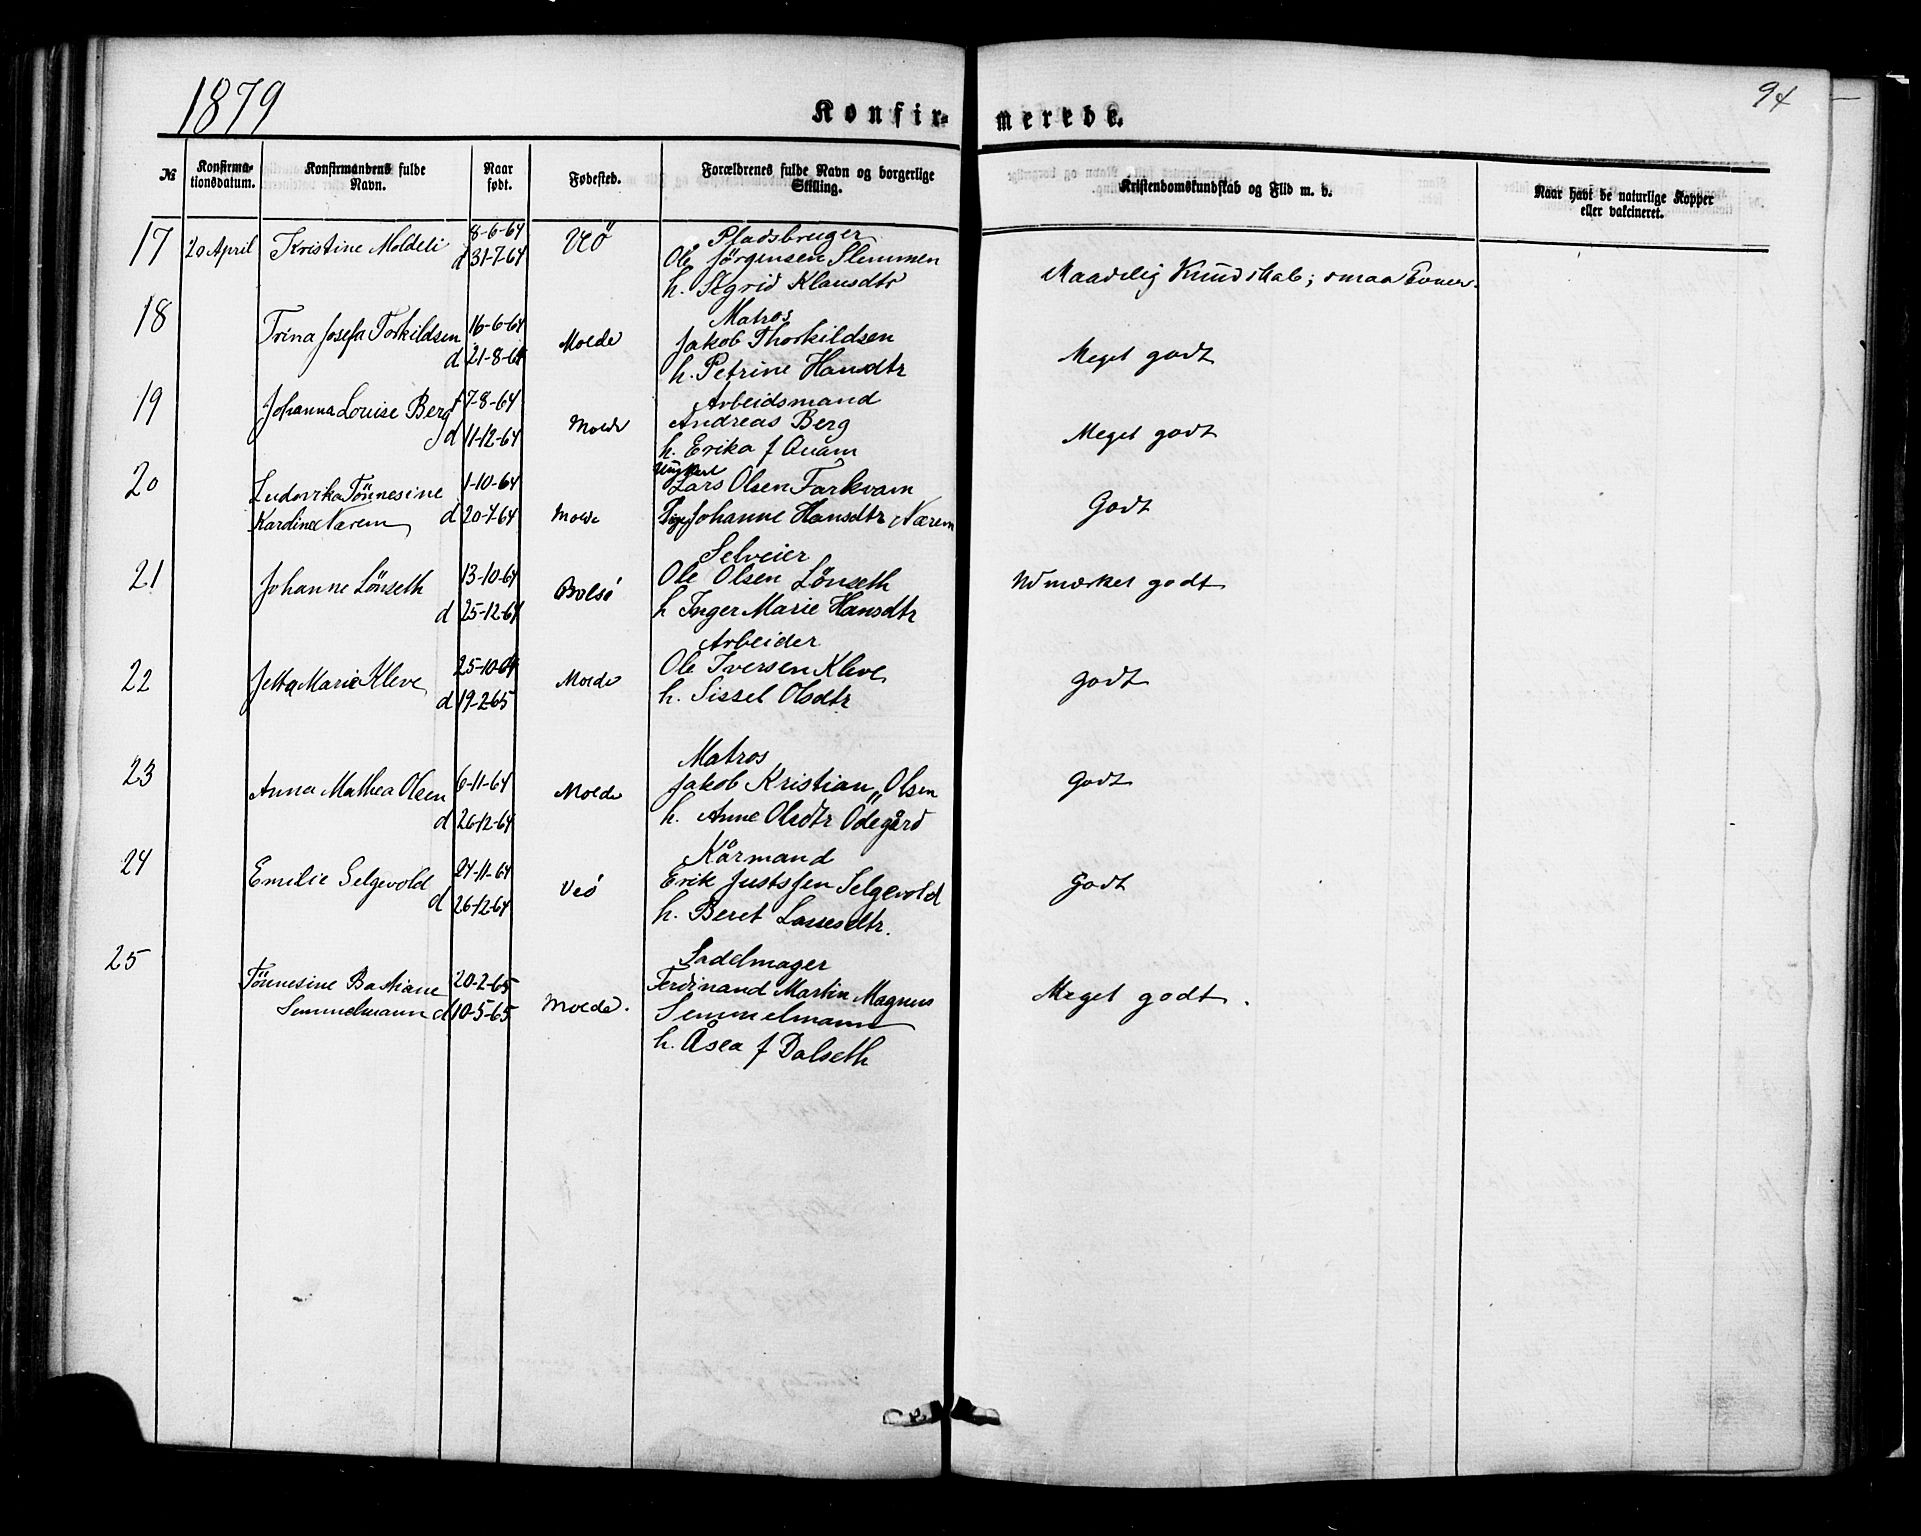 1879
Konfir-
merede.
94
№
Konfirma-
tionsdatum.
Konfirmandens fulde
Navn.
Naar
født.
Fødested.
Forældrenes fulde Navn og borgerlige
Stilling.
Kristendomskundskab og Flid m. v.
Naar havt de naturlige Kopper
eller vakcineret.
17 20 April Kristine Moldeli 8-6-64 Veö Pladsbruger
d 31-7-64 Ole Jørgensen Slemmen
h. Sigrid Klausdtr Maadelig Kundskab; smaa Evner.
18 Trina Josefa Torkildsen 16-6-64 Molde Matros
d 21-8-64 Jakob Thorkildsen
h. Petrine Hansdtr Meget godt
19 Johanna Louise Berg f 7-8-64 Molde Arbeidsmand
d 11-12-64 Andreas Berg
h. Erika f Quam Meget godt
20 Ludovika Tönnesine 1-10-64 Ungkarl
Lars Olsen Farkvam
Kardine Nærem d 20-7-64 Molde Pige Johanne Hansdtr Nærem Godt
21 Johanne Lönseth 13-10-64 Bolsø Selveier
Ole Olsen Lönseth
d 25-12-64 h Inger Marie Hansdtr Udmærket godt
22 Jetta Marie Kleve 25-10-64 Molde Arbeider
Ole Iversen Kleve
d 19-2-65 h. Sissel Olsdtr godt
23 Anna Mathea Olsen 6-11-64 Molde Matros
Jakob Kristian Olsen
d 26-12-64 h. Anne Olsdtr Ödegård Godt
24 Emilie Selgevold 24-11-64 Veö Kårmand
Erik Justsen Selgevold
d 26-12-64 h. Beret Lassesdtr. Godt
25 Tönnesine Bastiane 20-2-65 Molde. Sadelmager
Ferdinand Martin Magnus
Semmelmann d 10-5-65 Semmelmann
h. Åsea f Dalseth Meget godt.